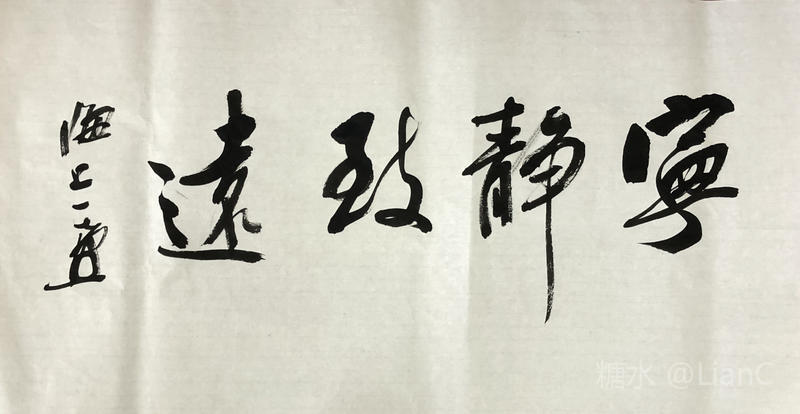 寧靜致遠
海上一
糖水 @LianC